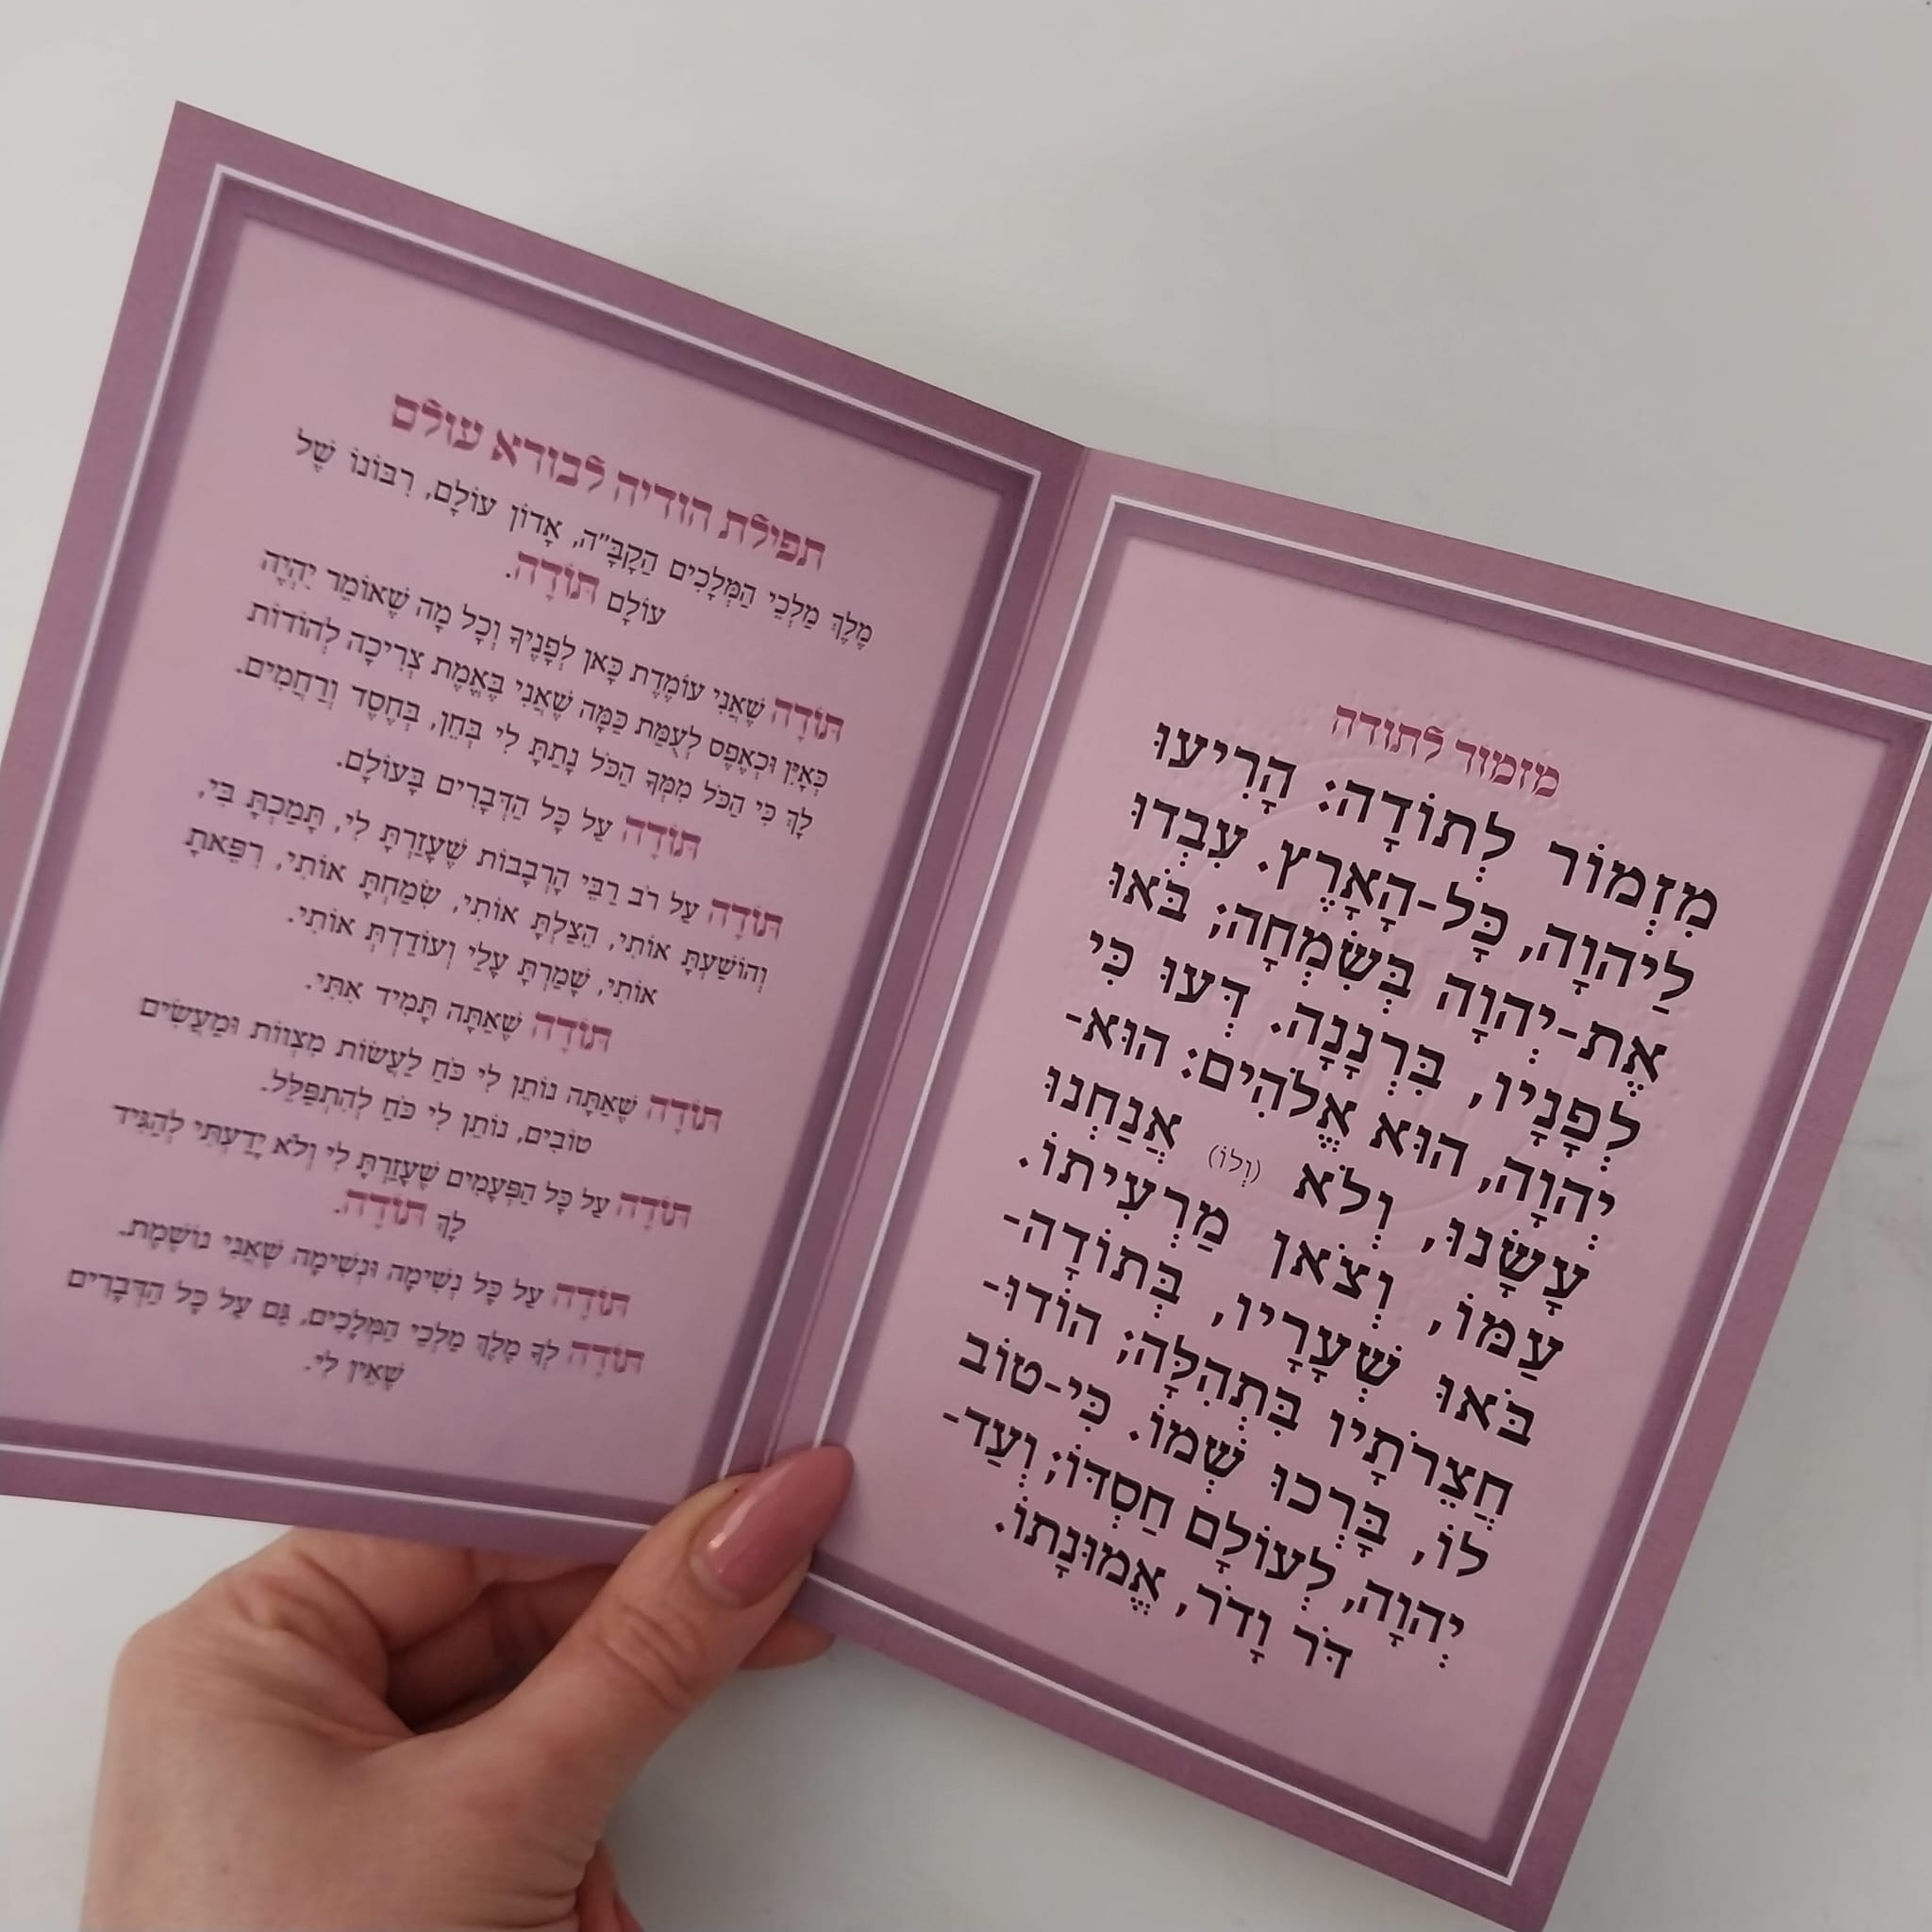 מזמור לתודה
מִזְמוֹר לְתוֹדָה: הָרִיעוּ
לַיהוָה, כָּל-הָאָרֶץ. עִבְדוּ
אֶת-יְהוָה בְּשִׂמְחָה; בֹּאוּ
לְפָנָיו, בִּרְנָנָה. דְּעוּ כִּי
יְהוָה, הוּא אֱלֹהִים: הוּא-
עָשָׂנוּ, וְלֹא (וְלוֹ) אֲנַחְנוּ
עַמּוֹ, וְצֹאן מַרְעִיתוֹ.
בֹּאוּ שְׁעָרָיו, בְּתוֹדָה-
חֲצֵרֹתָיו בִּתְהִלָּה; הוֹדוּ-
לוֹ, בָּרְכוּ שְׁמוֹ. כִּי-טוֹב
יְהוָה, לְעוֹלָם חַסְדּוֹ; וְעַד-
דֹּר וָדֹר, אֱמוּנָתוֹ.
תפילת הודיה לבורא עולם
מֶלֶךְ מַלְכֵי הַמְּלָכִים הַקָּבָּ"ה, אָדוֹן עוֹלָם, רִבּוֹנוֹ שֶׁל
עוֹלָם תּוֹדָה.
תּוֹדָה שֶׁאֲנִי עוֹמֶדֶת כָּאן לְפָנֶיךָ וְכָל מָה שֶׁאוֹמַר יִהְיֶה
כְּאַיִן וּכְאֶפֶס לְעֻמַּת כַּמָּה שֶׁאֲנִי בֶּאֱמֶת צְרִיכָה לְהוֹדוֹת
לָךְ כִּי הַכֹּל מִמְּךָ הַכֹּל נָתַתָּ לִי בְּחֵן, בְּחֶסֶד וְרַחֲמִים.
תּוֹדָה עַל כָּל הַדְּבָרִים בָּעוֹלָם.
תּוֹדָה עַל רֹב רַבֵּי הָרְבָבוֹת שֶׁעָזַרְתָּ לִי, תָּמַכְתָּ בִּי,
וְהוֹשַׁעְתָּ אוֹתִי, הִצַּלְתָּ אוֹתִי, שִׂמַּחְתָּ אוֹתִי, רִפֵּאתָ
אוֹתִי, שָׁמַרְתָּ עָלַי וְעוֹדַדְתָּ אוֹתִי.
תּוֹדָה שֶׁאַתָּה תָּמִיד אִתִּי.
תּוֹדָה שֶׁאַתָּה נוֹתֵן לִי כֹּחַ לַעֲשׂוֹת מִצְווֹת וּמַעֲשִׂים
טוֹבִים, נוֹתֵן לִי כֹּחַ לְהִתְפַּלֵּל.
תּוֹדָה עַל כָּל הַפְּעָמִים שֶׁעָזַרְתָּ לִי וְלֹא יָדַעְתִּי לְהַגִּיד
לָךְ תּוֹדָה.
תּוֹדָה עַל כָּל נְשִׁימָה וּנְשִׁימָה שֶׁאֲנִי נוֹשֶׁמֶת.
תּוֹדָה לְךָ מֶלֶךְ מַלְכֵי הַמְּלָכִים, גַּם עַל כָּל הַדְּבָרִים
שֶׁאֵין לִי.